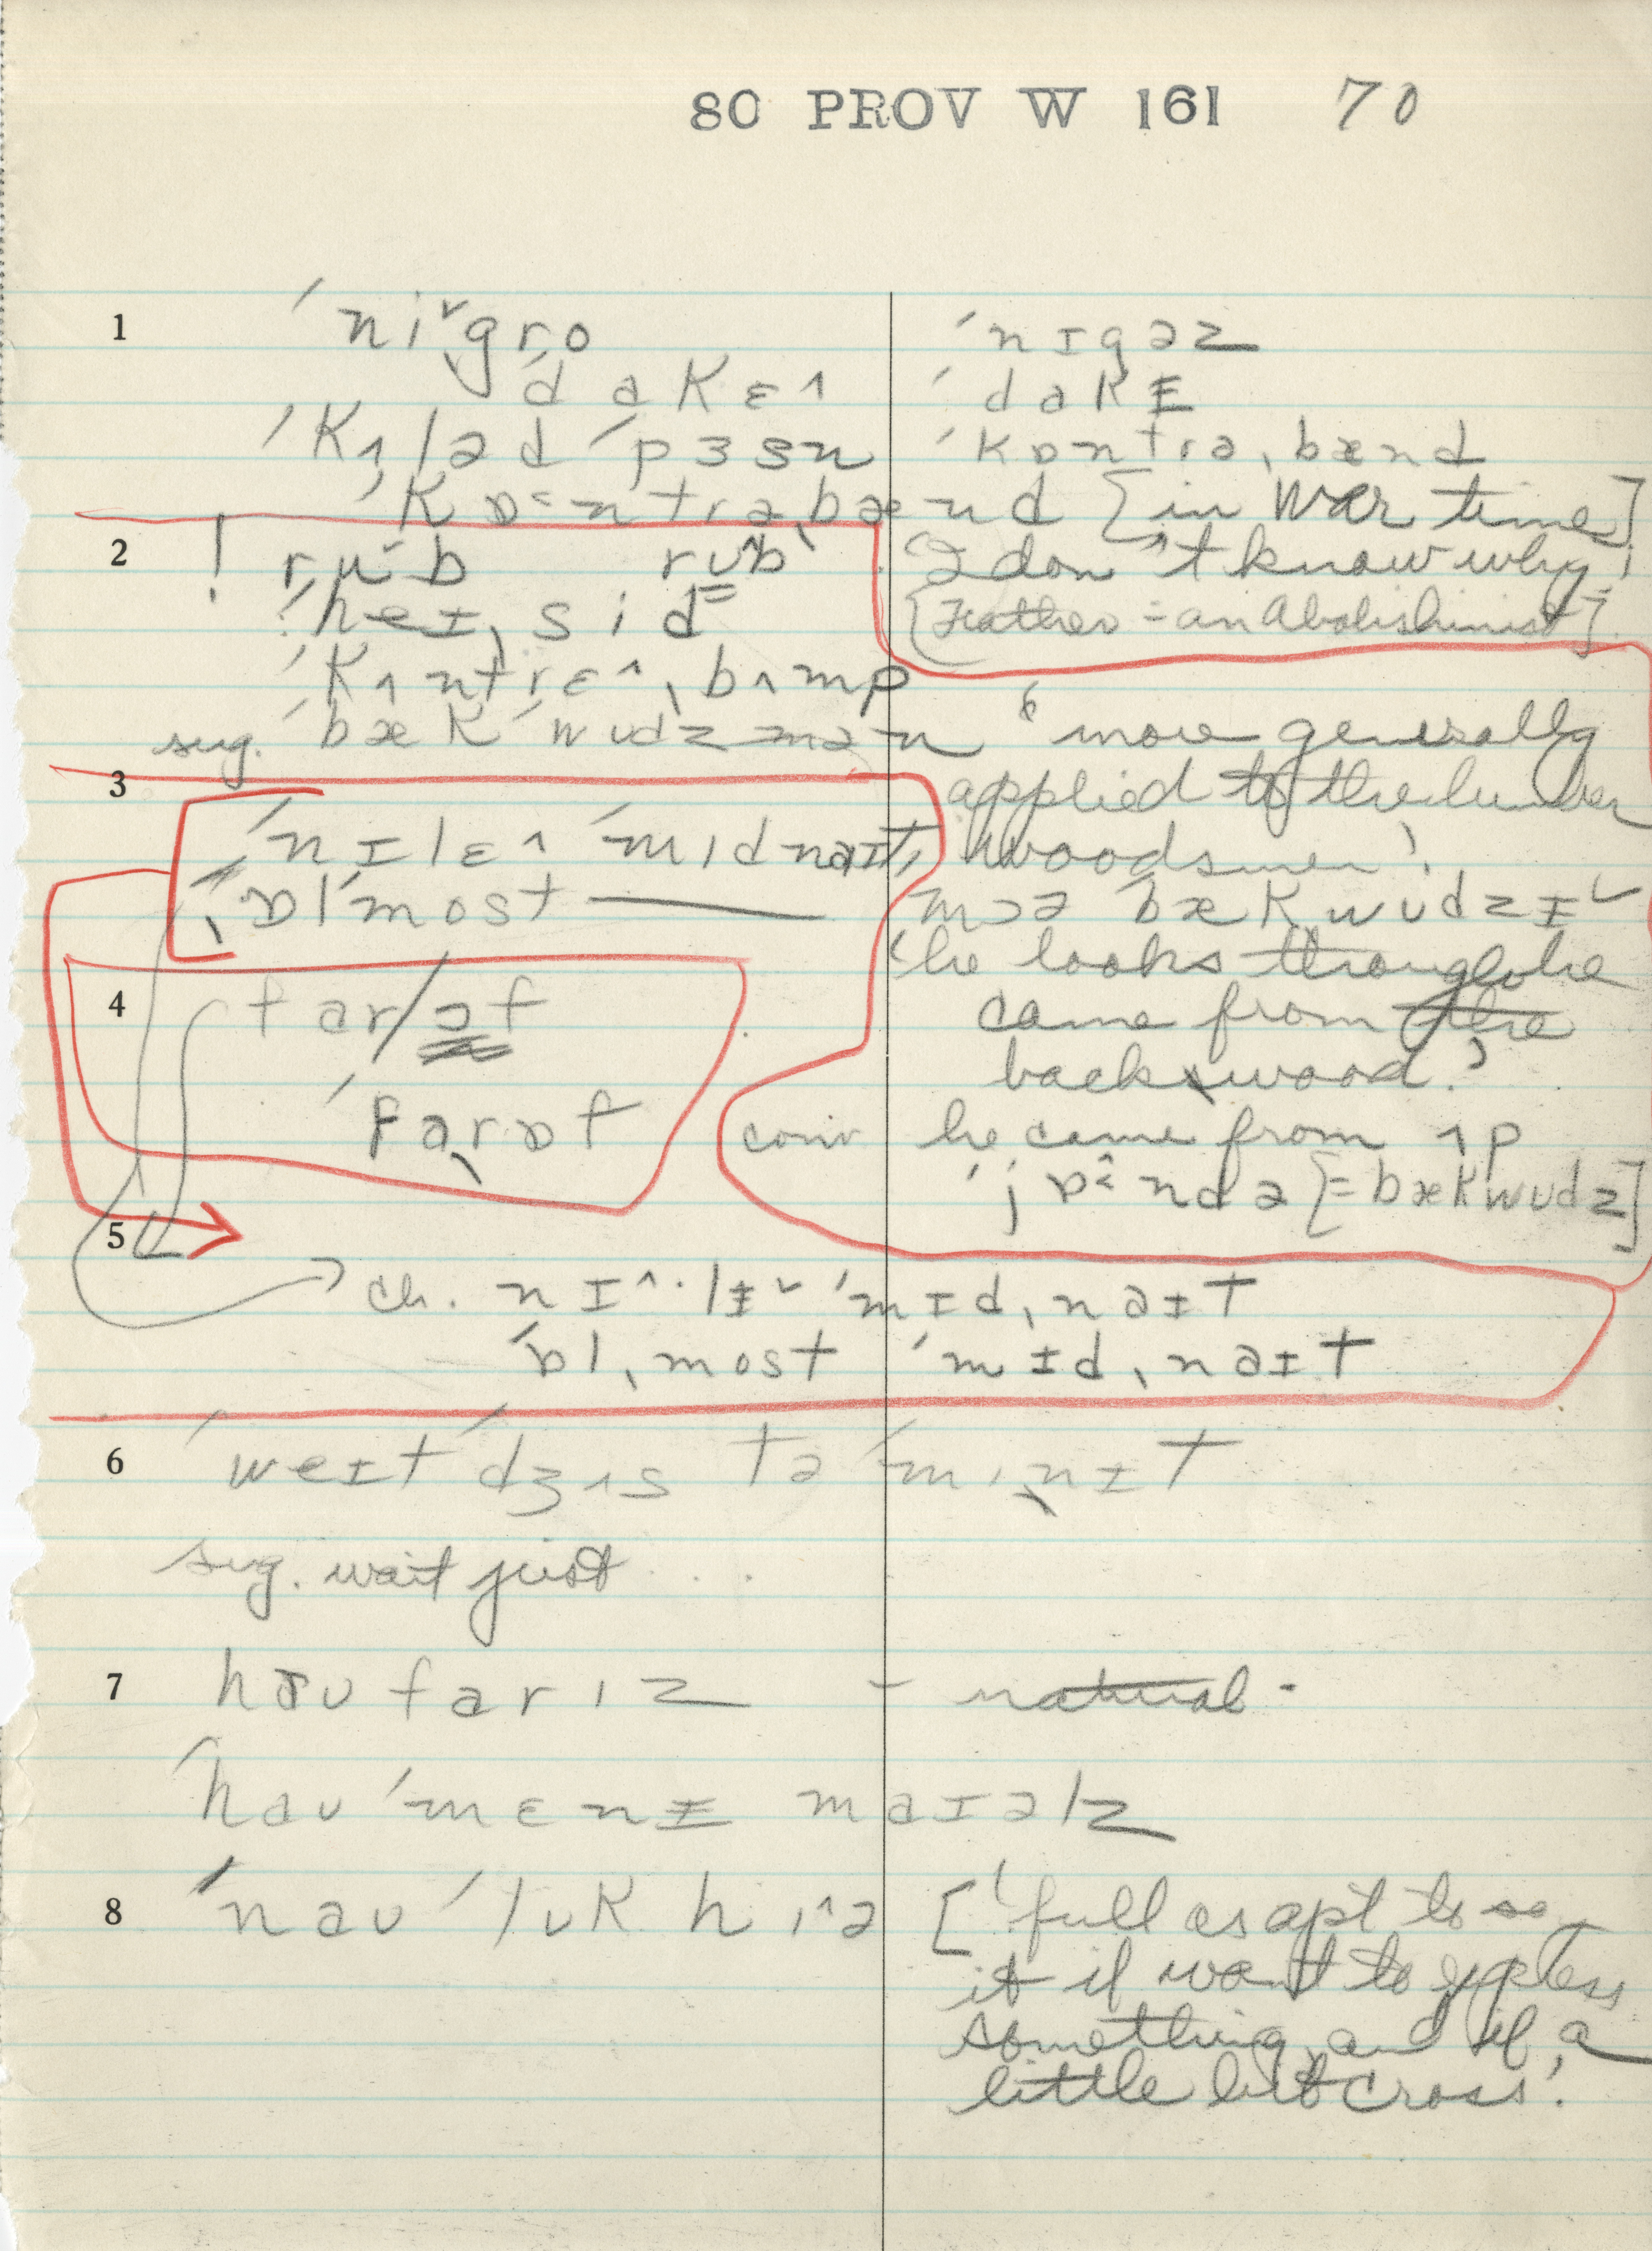 80 PROV W 161 70
1 ˈniˇˌgro ˈnɪgəz
ˈdakɛ^ ˈdakɪ
ˈkʌləd ˈpɜsn ˈkɒntrəˌbænd
ˈkɒ^ntrəˌbænd [in War time]
2 ! ruˇb rub 'I don't know why'
! ˈheɪˌsid [Father = an Abolishinist]
ˈkʌntrɛ^ˌbʌmp
sug. ˈbæk ˈwudzmən 'more generally
3 applied to the lumber
ˈnɪlɛ^ ˈmidnaɪt, woodsmen'.
ˌɒlˈmost — mɔə ˈbækwudzɪˇ
'he looks though he
4 far/ɔf came from the
backswood.'
ˈfaˌrɒf conv he came from ʌp
ˈjɒ^ndə [= bækwudz]
5
ch. nɪ^·lɪˇ ˈmɪdˌnaɪt
ˈɒlˌmost ˈmɪdˌnaɪt
6 ˈweɪt ˈdʒʌs tə ˈmiˌnɪt
sug. wait just ...
7 haufariz - natural -
ˈhau ˈmɛnɪ maɪəlz
8 ˈnau ˈluk hi^ə ['full as apt to
it if want to express
something and if a
little bit cross'.